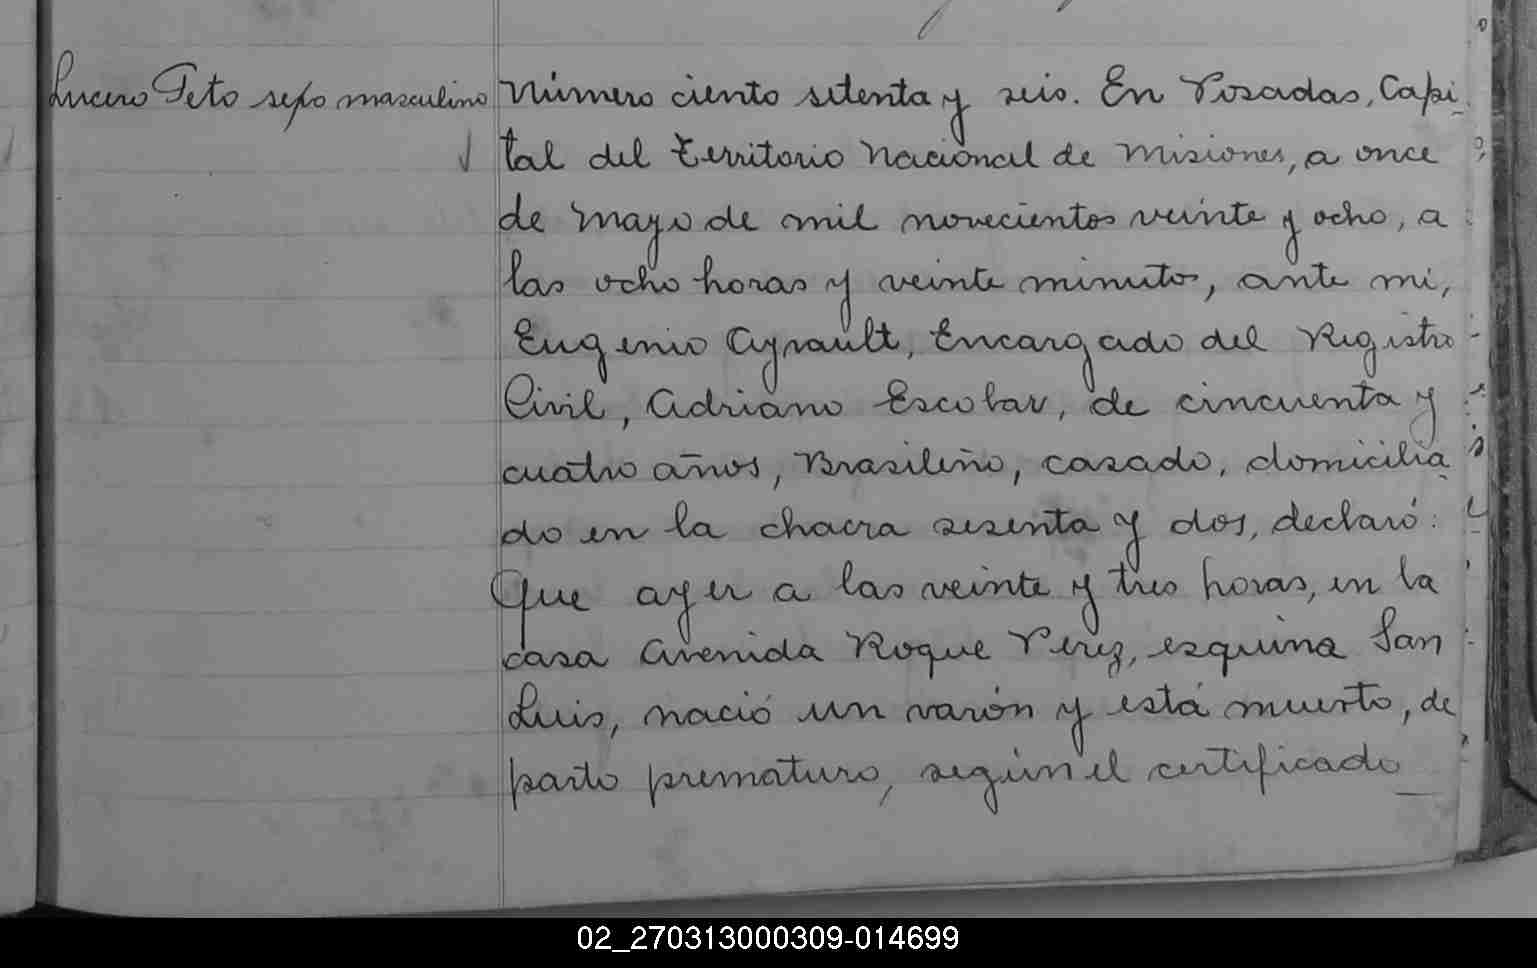 Lucero Feto sexo masculino
Número ciento setenta y seis. En Posadas, Capi-
tal del Territorio Nacional de Misiones, a once
de Mayo de mil novecientos veinte y ocho, a
las ocho horas y veinte minutos, ante mi,
Eugenio Ayrault, Encargado del Registro
Civil, Adriano Escobar, de cincuenta y
cuatro años, Brasileño, casado, domicilia-
do en la chacra sesenta y dos, declaró:
Que ayer a las veinte y tres horas, en la
casa Avenida Roque Perez, esquina San
Luis, nació un varón y está muerto, de
parto prematuro, según el certificado
02_270313000309-014699